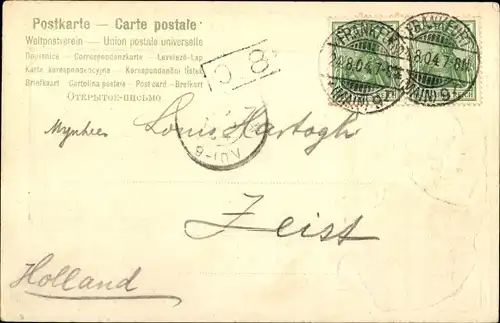 Postkarte — Carte postale
Weltpostverein — Union postale universelle
Dopisnice — Correspondenzkarte — Levelező-Lap
Karte korespondencyjna — Korespondenční lístek
Briefkaart — Cartolina postale — Postcard — Brevkort
Открытое письмо
FRANKFURT
24.8.04.7-8N.
(MAIN) 9
FRANKFURT
8.04.7-8N.
(MAIN) 9
C 8
Mynheer Louis Hartogh
Zeist
Holland